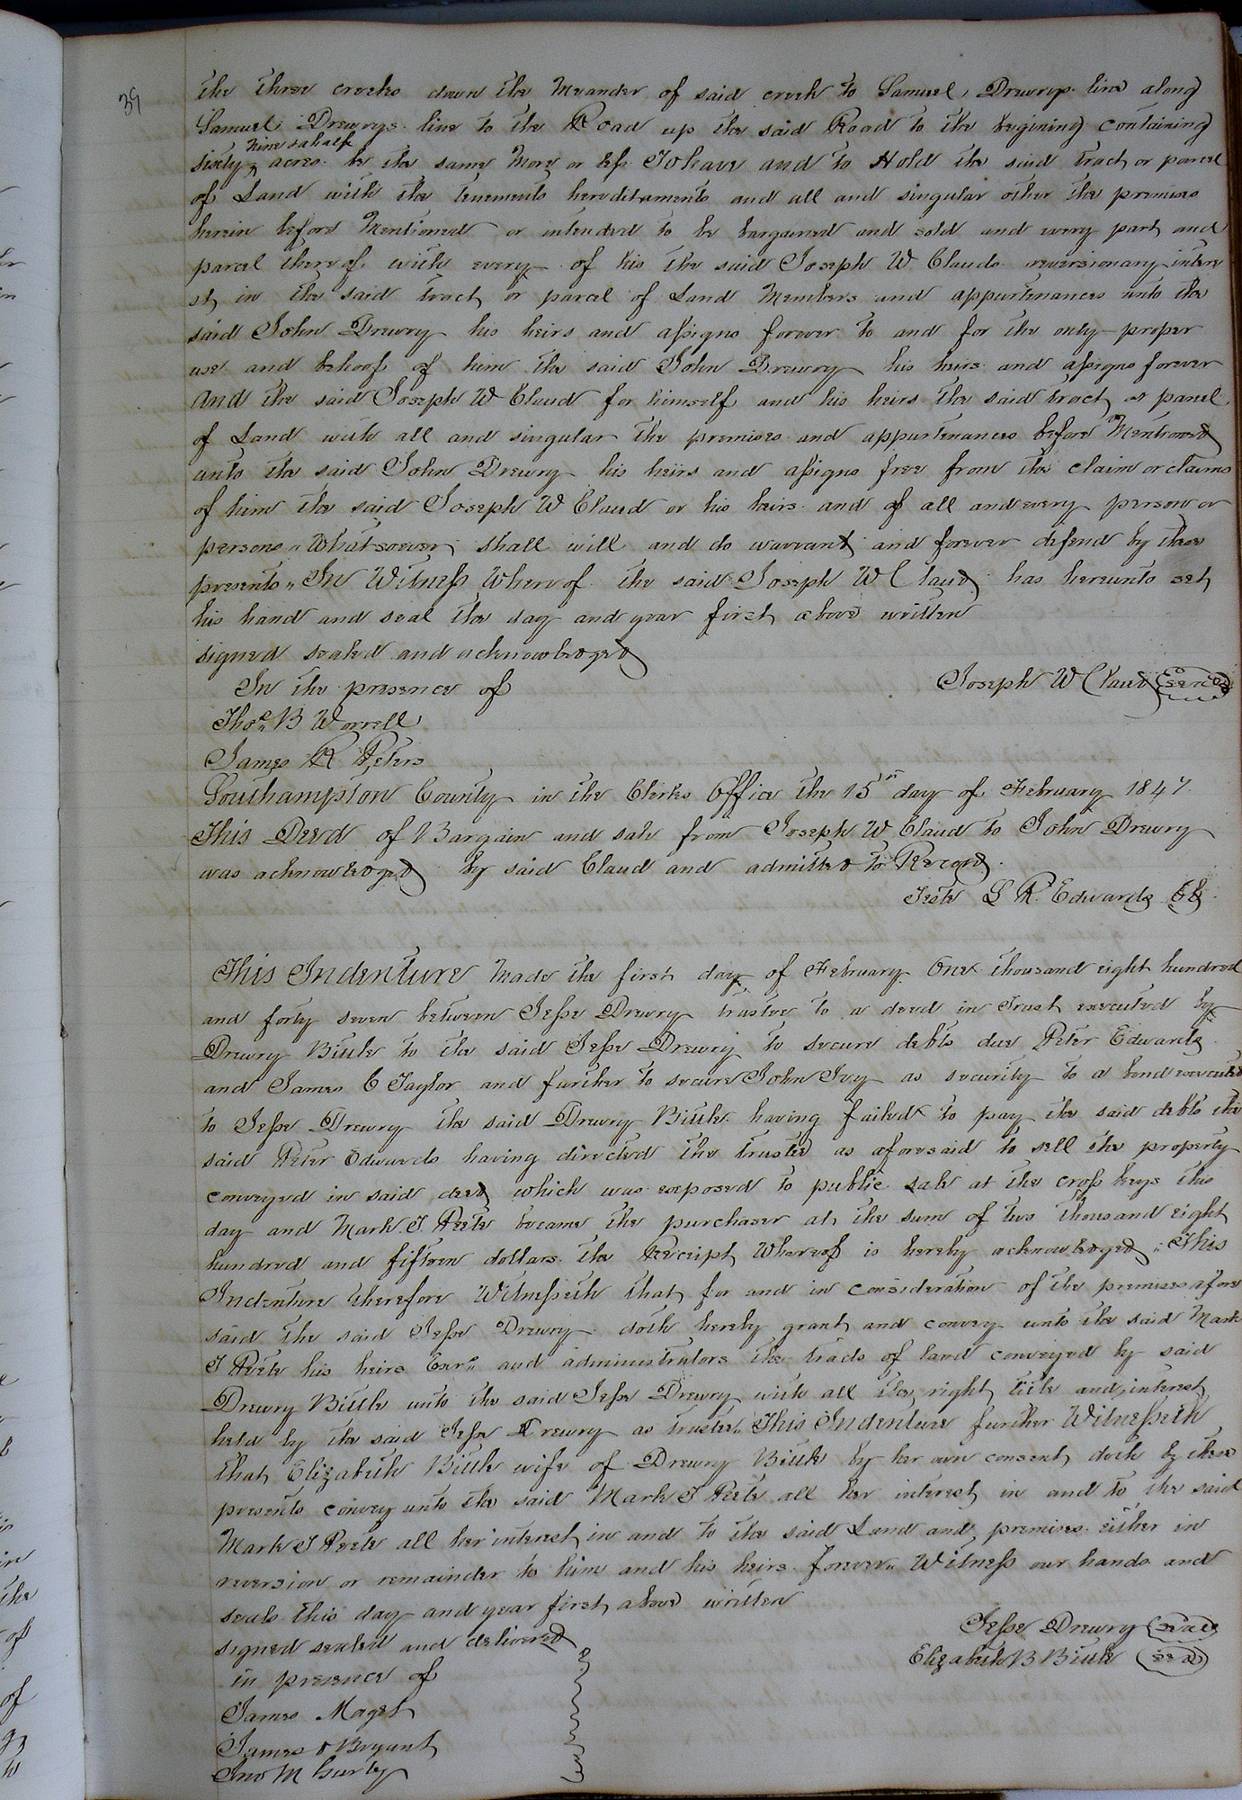 39
the three creeks down the Meander of said creek to Samuel Drewrys line along
Samuel Drewrys line to the Road up the said Road to the begining containing
nine & a half
sixty acres be the same More or less To have and to Hold the said tract or parcel
of Land with the tenements hereditaments and all and singular other the premises
herein before Mentioned or intended to be bargained and sold and every part and
parcel thereof with every of his the said Joseph W Clauds reversionary intere
st in the said tract or parcel of Land Members and appurtenances unto the
said John Drewry his heirs and assigns forever to and for the only proper
use and behoof of him the said John Drewry his heirs and assigns forever
And the said Joseph W Claud for himself and his heirs the said tract or parcel
of Land with all and singular the premises and appurtenances before Mentioned
unto the said John Drewry his heirs and assigns free from the claim or claims
of him the said Joseph W Claud or his heirs and of all and every person or
persons Whatsoever shall will and do warrant and forever defend by these
presents In Witness Whereof the said Joseph W Claud has hereunto set
his hand and seal the day and year first above written
signed sealed and acknowledged
In the presence of
Joseph W Claud seal
Thos B Worrell
James R Peters
Southampton County in the Clerks Office the 15th day of February 1847
This Deed of Bargain and sale from Joseph W Claud to John Drewry
was acknowledged by said Claud and admitted to Record.
Teste L R Edwards Clk
This Indenture Made the first day of February One thousand eight hundred
and forty seven between Jesse Drewry trustee to a deed in Trust executed by
Drewry Bittle to the said Jesse Drewry to secure debts due Peter Edwards
and James C Taylor and further to secure John Ivy as security to a bond executed
to Jesse Drewry the said Drewry Bittle having failed to pay the said debts the
said Peter Edwards having directed the trustee as aforesaid to sell the property
conveyed in said deed which was exposed to public sale at the cross keys this
day and Mark J Peete became the purchaser at the sum of two thousand eight
hundred and fifteen dollars the Receipt Whereof is hereby acknowledged This
Indenture therefore Witnesseth that for and in consideration of the premises afore
said the said Jesse Drewry doth hereby grant and convey unto the said Mark
J Peete his heirs Exrs and administrators the tracts of land conveyed by said
Drewry Bittle unto the said Jesse Drewry with all the right title and interest
held by the said Jesse Drewry as trustee This Indenture further Witnesseth
that Elizabeth Bittle wife of Drewry Bittle by her own consent doth by these
presents convey unto the said Mark J Peete all her interest in and to the said
Mark J Peete all her interest in and to the said Land and premises either in
reversion or remainder to him and his heirs forever Witness our hands and
seals this day and year first above written
signed sealed and delivered
Jesse Drewry seal
in presence of
Elizabeth B Bittle seal
James Maget
James Bryant
Jno M Gurley